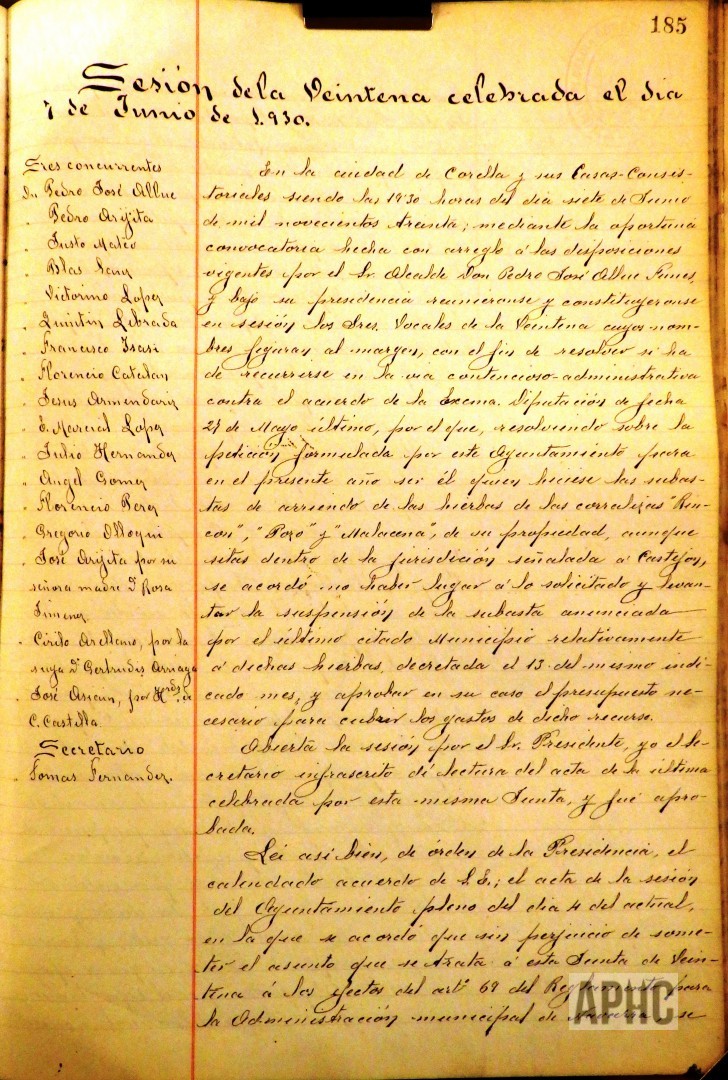 185
Sesión de la Veintena celebrada el dia
7 de Junio de 1.930.
Sres concurrentes
Dn Pedro José Allue
" Pedro Arijita
" Justo Mateo
" Blas Sanz
" Victorino Lopez
" Quintin Librada
" Francisco Isasi
" Florencio Catalan
" Jesus Armendariz
" E. Marcial Lopez
" Julio Hernandez
" Angel Gomez
" Florencio Perez
" Gregorio Olloqui
" José Arijita por su
señora madre Dª Rosa
Jimenez
" Cirilo Arellano, por la
suya Dª Gertrudis Arriaga
" José Ascain, por Herds. de
C. Castilla.
Secretario
" Tomas Fernandez.
En la ciudad de Corella y sus Casas-Consis-
toriales siendo las 19'30 horas del dia siete de Junio
de mil novecientos treinta; mediante la oportuna
convocatoria hecha con arreglo á las disposiciones
vigentes por el Sr. Alcalde Don Pedro José Allue Funes,
y bajo su presidencia reuniéronse y constituyeronse
en sesión los Sres. Vocales de la Veintena cuyos nom-
bres figuran al margen, con el fin de resolver si ha
de recurrirse en la via contencioso-administrativa
contra el acuerdo de la Excma. Diputación de fecha
27 de Mayo último, por el que, resolviendo sobre la
petición formulada por este Ayuntamiento para
en el presente año sea él quien hiciese las subas-
tas de arriendo de las hierbas de las corralizas "Rin-
con", "Pozo" y "Malacena", de su propiedad, aunque
sitas dentro de la jurisdición señalada á Castejon,
se acordó no haber lugar á lo solicitado y levan-
tar la suspensión de la subasta anunciada
por el último citado Municipio relativamente
á dichas hierbas, decretada el 13 del mismo indi-
cado mes, y aprobar en su caso el presupuesto ne-
cesario para cubrir los gastos de dicho recurso.
Abierta la sesión por el Sr. Presidente, yo el Se-
cretario infrascrito dí lectura del acta de la última
celebrada por esta misma Junta, y fué apro-
bada.
Leí asi bien, de órden de la Presidencia, el
calendado acuerdo de S.E.; el acta de la sesión
del Ayuntamiento pleno del dia 4 del actual,
en la que se acordó que sin perjuicio de some-
ter el asunto que se trata á esta Junta de Vein-
tena á los efectos del artº 69 del Reglamento para
la Administración municipal de Navarra se
APHC